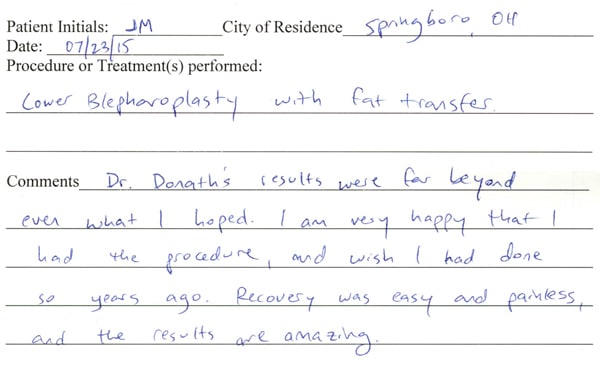 Patient Initials: JM City of Residence Springboro, OH
Date: 07/23/15
Procedure or Treatment(s) performed:
Lower Blepharoplasty with fat transfer.
Comments Dr. Donath's results were far beyond
even what I hoped. I am very happy that I
had the procedure, and wish I had done
so years ago. Recovery was easy and painless,
and the results are amazing.